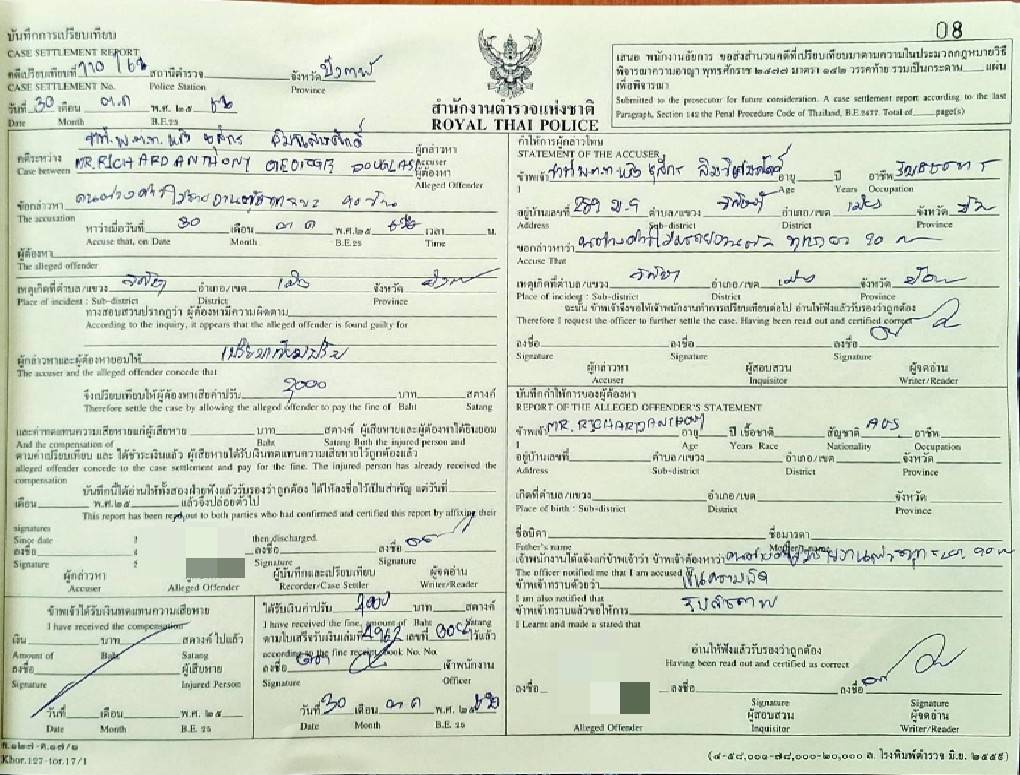 08
บันทึกการเปรียบเทียบ
CASE SETTLEMENT REPORT
คดีเปรียบเทียบที่ สถานีตำรวจ จังหวัด
CASE SETTLEMENT No. Police Station Province
วันที่ 30 เดือน ต.ค พ.ศ. ๒๕
Date Month B.E.25
สำนักงานตำรวจแห่งชาติ
ROYAL THAI POLICE
เสนอ พนักงานอัยการ ขอส่งสำนวนคดีที่เปรียบเทียบมาตามความในประมวลกฎหมายวิธี
พิจารณาความอาญา พุทธศักราช ๒๔๗๗ มาตรา ๑๔๒ วรรคท้าย รวมเป็นกระดาน แผ่น
เพื่อพิจารณา
Submitted to the prosecutor for future consideration. A case settlement report according to the last
Paragraph, Section 142 the Penal Procedure Code of Thailand, B.E.2477. Total of page(s)
ผู้กล่าวหา
คดีระหว่าง MR.RICHARD ANTHONY DOUGLAS Accuser
Case between ผู้ต้องหา
Alleged Offender
ข้อกล่าวหา
The accusation
หาว่าเมื่อวันที่ 30 เดือน ต.ค พ.ศ.๒๕ เวลา น.
Accuse that, on Date Month B.E.25 Time
ผู้ต้องหา
The alleged offender
เหตุเกิดที่ตำบล/แขวง อำเภอ/เขต จังหวัด
Place of incident : Sub-district District Province
ทางสอบสวนปรากฏว่า ผู้ต้องหามีความผิดตาม
According to the inquiry, it appears that the alleged offender is found guilty for
ผู้กล่าวหาและผู้ต้องหายอมให้
The accuser and the alleged offender concede that
จึงเปรียบเทียบให้ผู้ต้องหาเสียค่าปรับ 2000 บาท สตางค์
Therefore settle the case by allowing the alleged offender to pay the fine of Baht Satang
และค่าทดแทนความเสียหายแก่ผู้เสียหาย บาท สตางค์ ผู้เสียหายและผู้ต้องหาได้ยินยอม
And the compensation of Baht Satang Both the injured person and
ตามคำเปรียบเทียบ และ ได้ชำระเงินแล้ว ผู้เสียหายได้รับเงินทดแทนความเสียหายไว้ถูกต้องแล้ว
alleged offender concede to the case settlement and pay for the fine. The injured person has already received the
compensation
บันทึกนี้ได้อ่านให้ทั้งสองฝ่ายฟังแล้วรับรองว่าถูกต้อง ได้ให้ลงชื่อไว้เป็นสำคัญ แต่วันที่
เดือน พ.ศ.๒๕ แล้วจึงปล่อยตัวไป
This report has been read out to both parties who had confirmed and certified this report by affixing their
signatures
Since date then discharged.
ลงชื่อ ลงชื่อ ลงชื่อ
Signature Signature Signature
ผู้กล่าวหา ผู้บันทึกและเปรียบเทียบ ผู้จดอ่าน
Accuser Alleged Offender Recorder/Case Settler Writer/Reader
ข้าพเจ้าได้รับเงินทดแทนความเสียหาย
I have received the compensation
เงิน บาท สตางค์ ไปแล้ว
Amount of Baht Satang
ลงชื่อ ผู้เสียหาย
Signature Injured Person
วันที่ เดือน พ.ศ. ๒๕
Date Month B.E. 25
ได้รับเงินค่าปรับ 2000 บาท สตางค์
I have received the fine, amount of Baht Satang
ตามใบเสร็จรับเงินเล่มที่ เลขที่ ไว้แล้ว
according to the fine receipt book No. No.
ลงชื่อ เจ้าพนักงาน
Signature Officer
วันที่ 30 เดือน ต.ค พ.ศ. ๒๕
Date Month B.E. 25
คำให้การผู้กล่าวโทษ
STATEMENT OF THE ACCUSER
ข้าพเจ้า อายุ ปี อาชีพ
I Age Years Occupation
อยู่บ้านเลขที่ ตำบล/แขวง อำเภอ/เขต จังหวัด
Address Sub-district District Province
ขอกล่าวหาว่า
Accuse That
เหตุเกิดที่ตำบล/แขวง อำเภอ/เขต จังหวัด
Place of incident : Sub-district District Province
ฉะนั้น ข้าพเจ้าจึงขอให้เจ้าพนักงานทำการเปรียบเทียบต่อไป อ่านให้ฟังแล้วรับรองว่าถูกต้อง
Therefore I request the officer to further settle the case. Having been read out and certified correct
ลงชื่อ ลงชื่อ ลงชื่อ
Signature Signature Signature
ผู้กล่าวหา ผู้สอบสวน ผู้จดอ่าน
Accuser Inquisitor Writer/Reader
บันทึกคำให้การของผู้ต้องหา
REPORT OF THE ALLEGED OFFENDER'S STATEMENT
ข้าพเจ้า MR. RICHARD ANTHONY อายุ ปี เชื้อชาติ สัญชาติ AUS อาชีพ
I Age Years Race Nationality Occupation
อยู่บ้านเลขที่ ตำบล/แขวง อำเภอ/เขต จังหวัด
Address Sub-district District Province
เกิดที่ตำบล/แขวง อำเภอ/เขต จังหวัด
Place of birth : Sub-district District Province
ชื่อบิดา ชื่อมารดา
Father's name Mother's name
เจ้าพนักงานได้แจ้งแก่ข้าพเจ้าว่า ข้าพเจ้าต้องหาว่า
The officer notified me that I am accused
ข้าพเจ้าทราบด้วยว่า เป็นความผิด
I am also notified that
ข้าพเจ้าทราบแล้วขอให้การ รับสารภาพ
I Learnt and made a stated that
อ่านให้ฟังแล้วรับรองว่าถูกต้อง
Having been read out and certified as correct
ลงชื่อ ลงชื่อ ลงชื่อ
Signature Signature
ผู้สอบสวน ผู้จดอ่าน
Alleged Offender Inquisitor Writer/Reader
ต.๑๒๗-ต.๑๗/๑
Khor.127-tor.17/1
(๔-๕๘,๐๐๑-๗๘,๐๐๐-๒๐,๐๐๐ ล. โรงพิมพ์ตำรวจ มิ.ย. ๒๕๕๕)